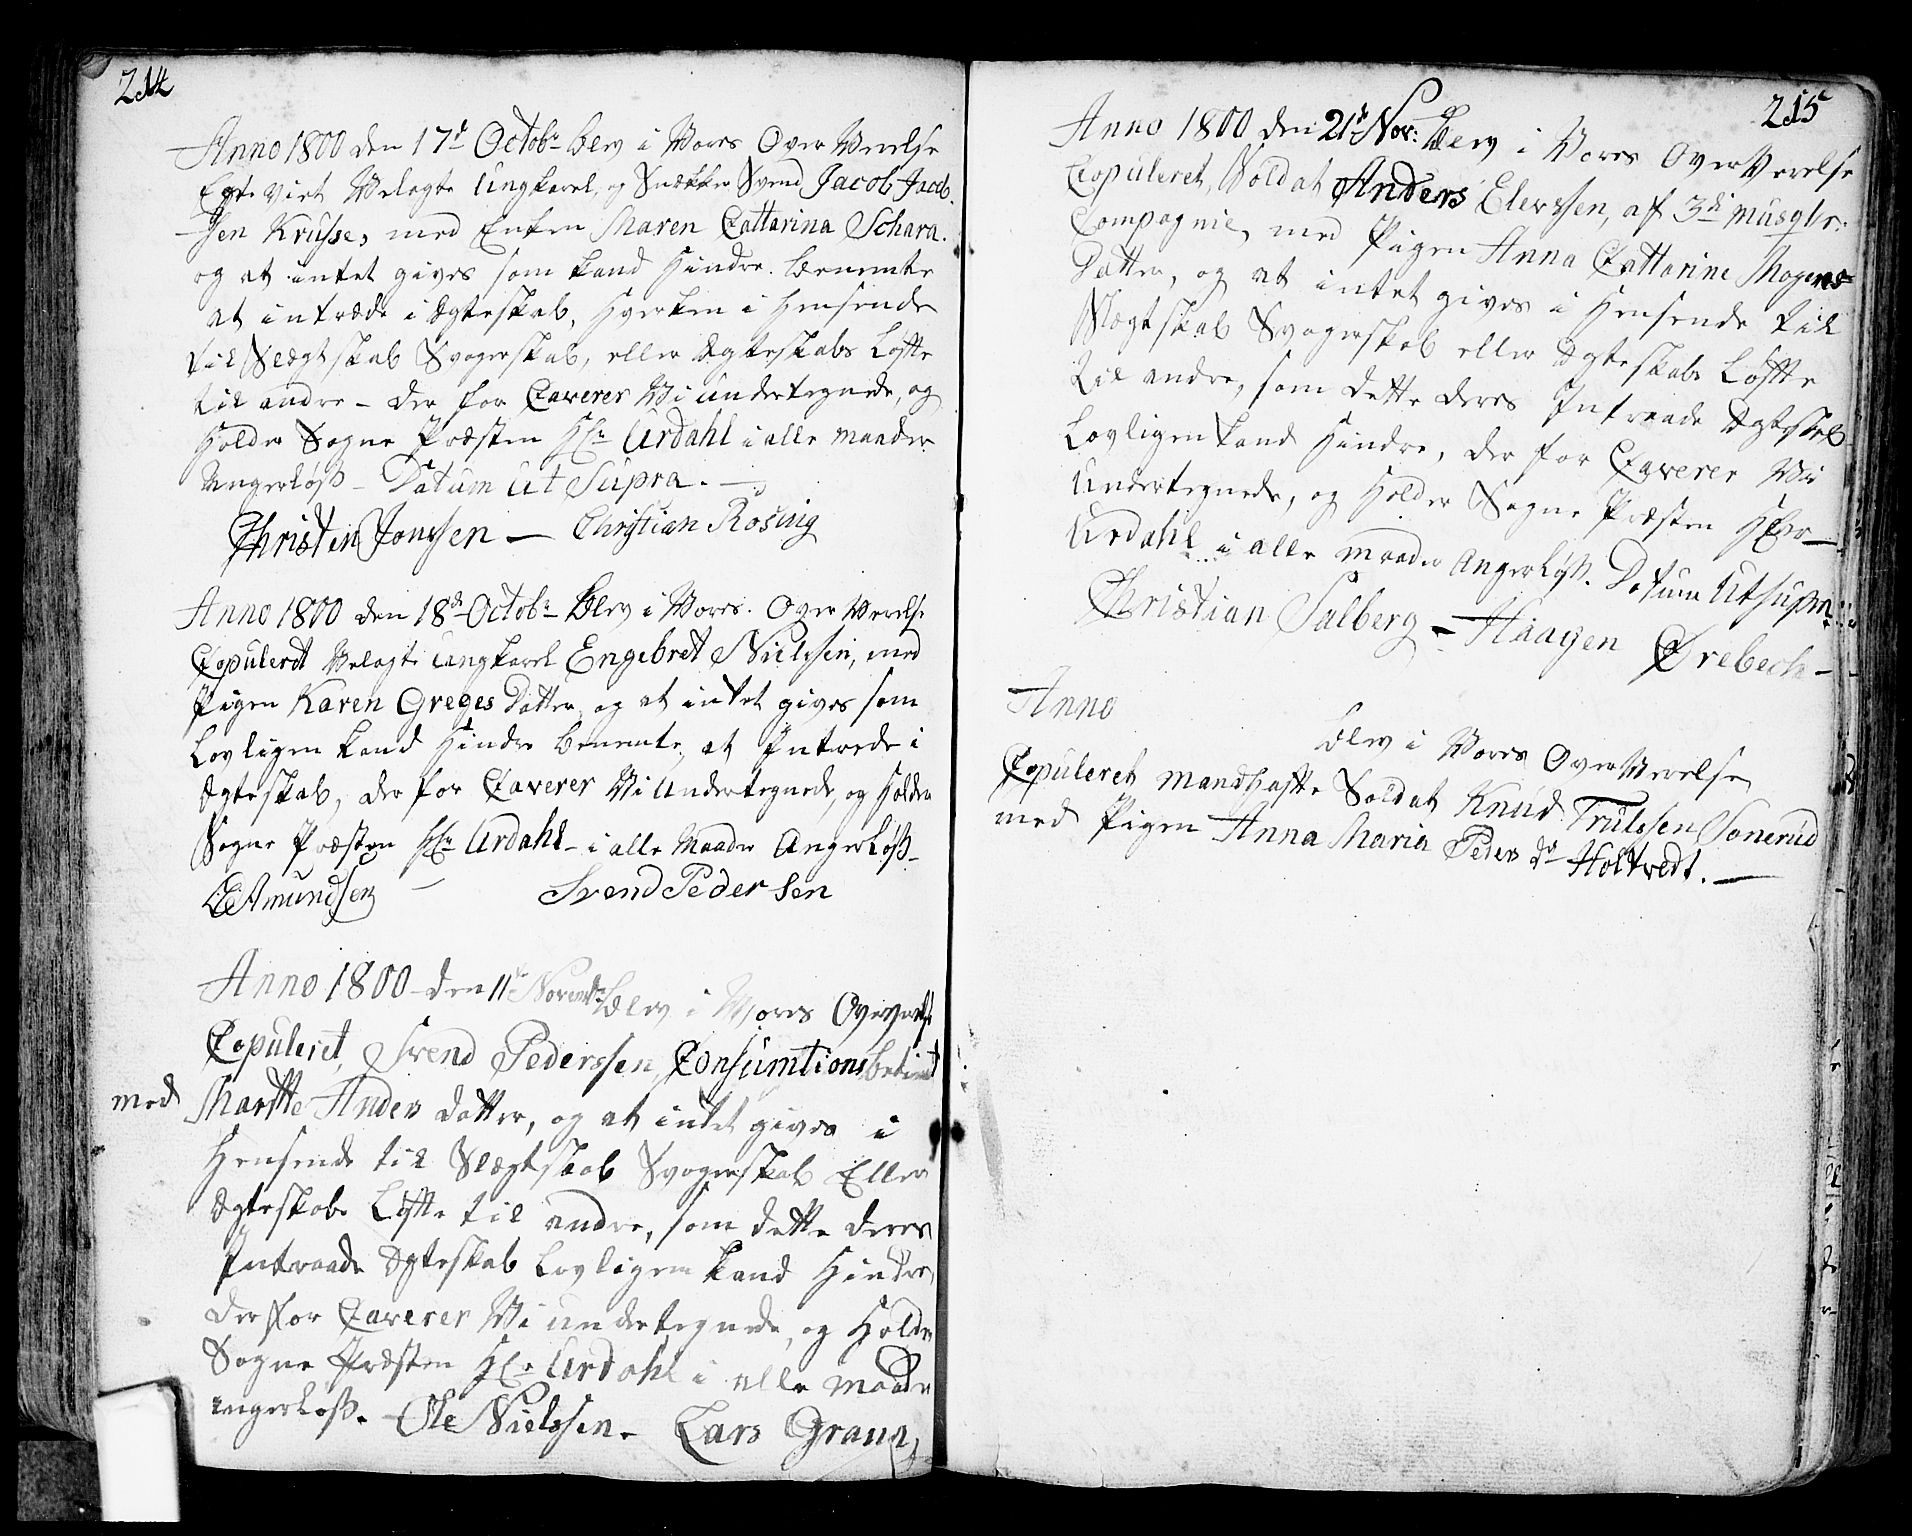 214
Anno 1800 den 17d Octobr blev i Vores Over Werelse
Egte viet Velagte Ungkarl, og Snækker Svend Jacob Jacob-
sen Krusse, med Enken Maren Cattarina Schara.
og at intet gives som kand Hindre benemte
at intræde i Ægteskab, Hverken i Hensende
til Slægtskab Svogerskab, eller Ægteskabs Løfte
til andre – der for Caverer Vi undertegnede, og
Holder Sogne Præsten Hr Urdahl i alle maader
Angerløs – Datum Ut Supra. –
Christen Jonssen – Christian Rosing
Anno 1800 den 18d Octobr blev i Vores Over Werelse
Copuleret Velagte ungkarl Engebret Nielssen, med
Pigen Karen Greges Datter, og at intet gives som
Lovligen kand Hindre benemte, at Intrede i
Ægteskab, der for Caverer Vi Undertegnede, og Holder
Sogne Præsten Hr Urdahl – i alle Maader Angerløs –
Amundsen – Svend Pedersen
Anno 1800 – den 11te Novembr blev i Vores Oververelse
Copuleret, Svend Pederssen, Consumtions betient
med Marthe Anders datter, og at intet gives i
Hensende til Slægtskab Svogerskab Eller
Ægteskabs Løfte til andre, som dette deres
Intraade Ægteskab Lovligen kand Hindre,
derfor Caverer Vi undertegnede, og Holder
Sogne Præsten Hr Urdahl i alle maader
angerløs. Ole Nielssen. Lars Graun
215
Anno 1800 den 21d Nov: blev i Vores Over Werelse
Copuleret, Soldat Anders Elevssen, af 3di musqtr:
Compagnie, med Pigen Anna Cattarine Mogens
Datter, og at intet gives i Hensende til
Slægtskab Svogerskab eller Ægteskabs Løfte
til andre, som dette deres Intraade Ægteskab
Lovligen kand Hindre, der for Caverer Vi
Undertegnede, og Holder Sogne Præsten Hr
Urdahl i alle maader Angerløs. Datum Ut Supra
Christian Salberg – Haagen Ørebech –
Anno
blev i Vores Over Werelse
Copuleret mandhafte Soldat Knud Trulssen Sonerud
med Pigen Anna Maria Peders dr Holtvedt. –